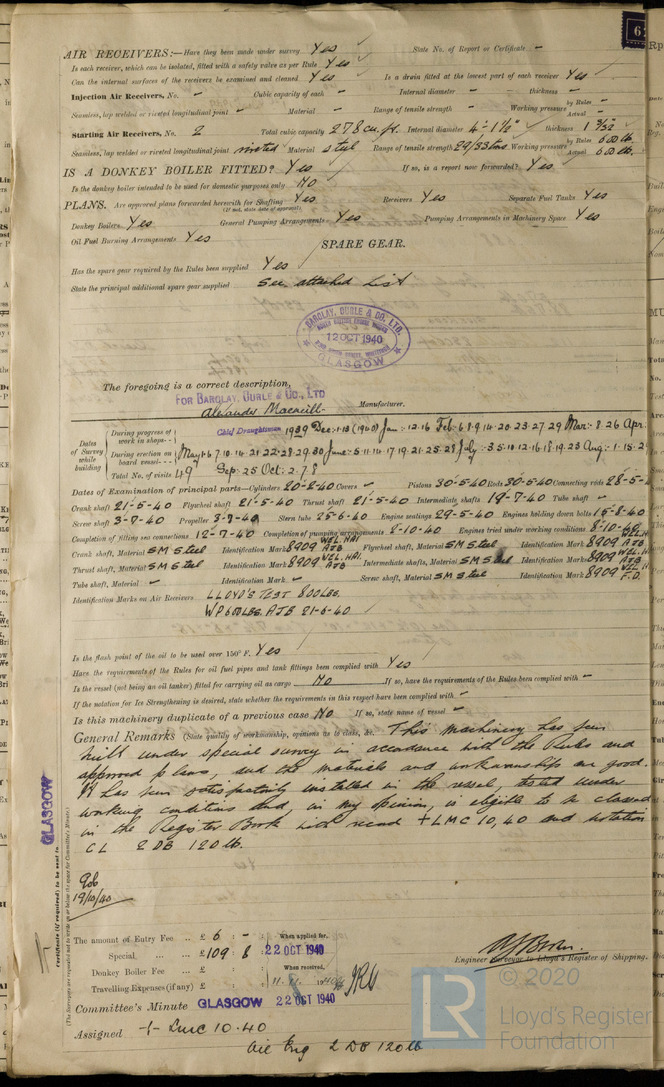 6
AIR RECEIVERS:—Have they been made under survey Yes State No. of Report or Certificate -
Is each receiver, which can be isolated, fitted with a safety valve as per Rule Yes
Can the internal surfaces of the receivers be examined and cleaned Yes Is a drain fitted at the lowest part of each receiver Yes
Injection Air Receivers, No. - Cubic capacity of each - Internal diameter - thickness -
Seamless, lap welded or riveted longitudinal joint - Material - Range of tensile strength - Working pressure by Rules - Actual -
Starting Air Receivers, No. 2 Total cubic capacity 278 cu. ft. Internal diameter 4'-1½" thickness 1 3/32"
Seamless, lap welded or riveted longitudinal joint riveted Material steel Range of tensile strength 29/33 tons Working pressure by Rules 600 lb. Actual 600 lb.
IS A DONKEY BOILER FITTED? Yes If so, is a report now forwarded? Yes
Is the donkey boiler intended to be used for domestic purposes only No
PLANS. Are approved plans forwarded herewith for Shafting Yes Receivers Yes Separate Fuel Tanks Yes
(If not, state date of approval)
Donkey Boilers Yes General Pumping Arrangements Yes Pumping Arrangements in Machinery Space Yes
Oil Fuel Burning Arrangements Yes
SPARE GEAR.
Has the spare gear required by the Rules been supplied Yes
State the principal additional spare gear supplied See attached List
BARCLAY, CURLE & CO. LTD.
12 OCT 1940
GLASGOW
The foregoing is a correct description,
FOR BARCLAY, CURLE & CO., LTD
Alexander Macneill Manufacturer.
Chief Draughtsman
Dates of Survey while building
During progress of work in shops-- 1939 Dec:-1.13 (1940) Jan:-12.16 Feb:6.8.9.14.20.23.27.29 Mar:-8.26 Apr:
During erection on board vessel-- May1.6.7.10.14.21.22.28.29.30 June:5.11.14.17.19.21.25.28 July:-3.5.10.12.16.18.19.23 Aug:-1.15.2
Total No. of visits 49 Sep:25 Oct:2.7.8
Dates of Examination of principal parts—Cylinders 20-2-40 Covers - Pistons 30-5-40 Rods 30-5-40 Connecting rods 28-5-4
Crank shaft 21-5-40 Flywheel shaft 21-5-40 Thrust shaft 21-5-40 Intermediate shafts 19-7-40 Tube shaft -
Screw shaft 3-7-40 Propeller 3-7-40 Stern tube 25-6-40 Engine seatings 29-5-40 Engines holding down bolts 15-8-40
Completion of fitting sea connections 12-7-40 Completion of pumping arrangements 2-10-40 Engines tried under working conditions 8-10-40
Crank shaft, Material SM Steel Identification Mark 8909 AJB Flywheel shaft, Material SM Steel Identification Mark 8909 AJB
Thrust shaft, Material SM Steel Identification Mark 8909 AJB Intermediate shafts, Material SM Steel Identification Mark 8909 AJB
Tube shaft, Material - Identification Mark - Screw shaft, Material SM Steel Identification Mark 8909 F.D.
Identification Marks on Air Receivers LLOYD'S TEST 800 LBS.
WP 600 LBS. AJB 21-6-40
Is the flash point of the oil to be used over 150° F. Yes
Have the requirements of the Rules for oil fuel pipes and tank fittings been complied with Yes
Is the vessel (not being an oil tanker) fitted for carrying oil as cargo No If so, have the requirements of the Rules been complied with -
If the notation for Ice Strengthening is desired, state whether the requirements in this respect have been complied with -
Is this machinery duplicate of a previous case No If so, state name of vessel -
General Remarks (State quality of workmanship, opinions as to class, &c. This machinery has been
built under special survey in accordance with the Rules and
approved plans, and the materials and workmanship are good.
It has been satisfactorily installed in the vessel, tested under
working conditions and, in my opinion, is eligible to be classed
in the Register Book with record +LMC 10,40 and notation
CL 2 DB 120 lb.
19/10/40
GLASGOW
Certificate (if required) to be sent to
(The Surveyors are requested not to write on or below the space for Committee's Minute.)
The amount of Entry Fee .. £ 6 : - : When applied for,
Special, ... .. £ 109 : 8 : 22 OCT 1940
Donkey Boiler Fee .. £ : : When received,
Travelling Expenses (if any) £ : : 11.11.1940
Engineer Surveyor to Lloyd's Register of Shipping.
Committee's Minute GLASGOW 22 OCT 1940
Assigned + LMC 10.40
Oil Eng 2 DB 120 lb
© 2020
LR
Lloyd's Register
Foundation